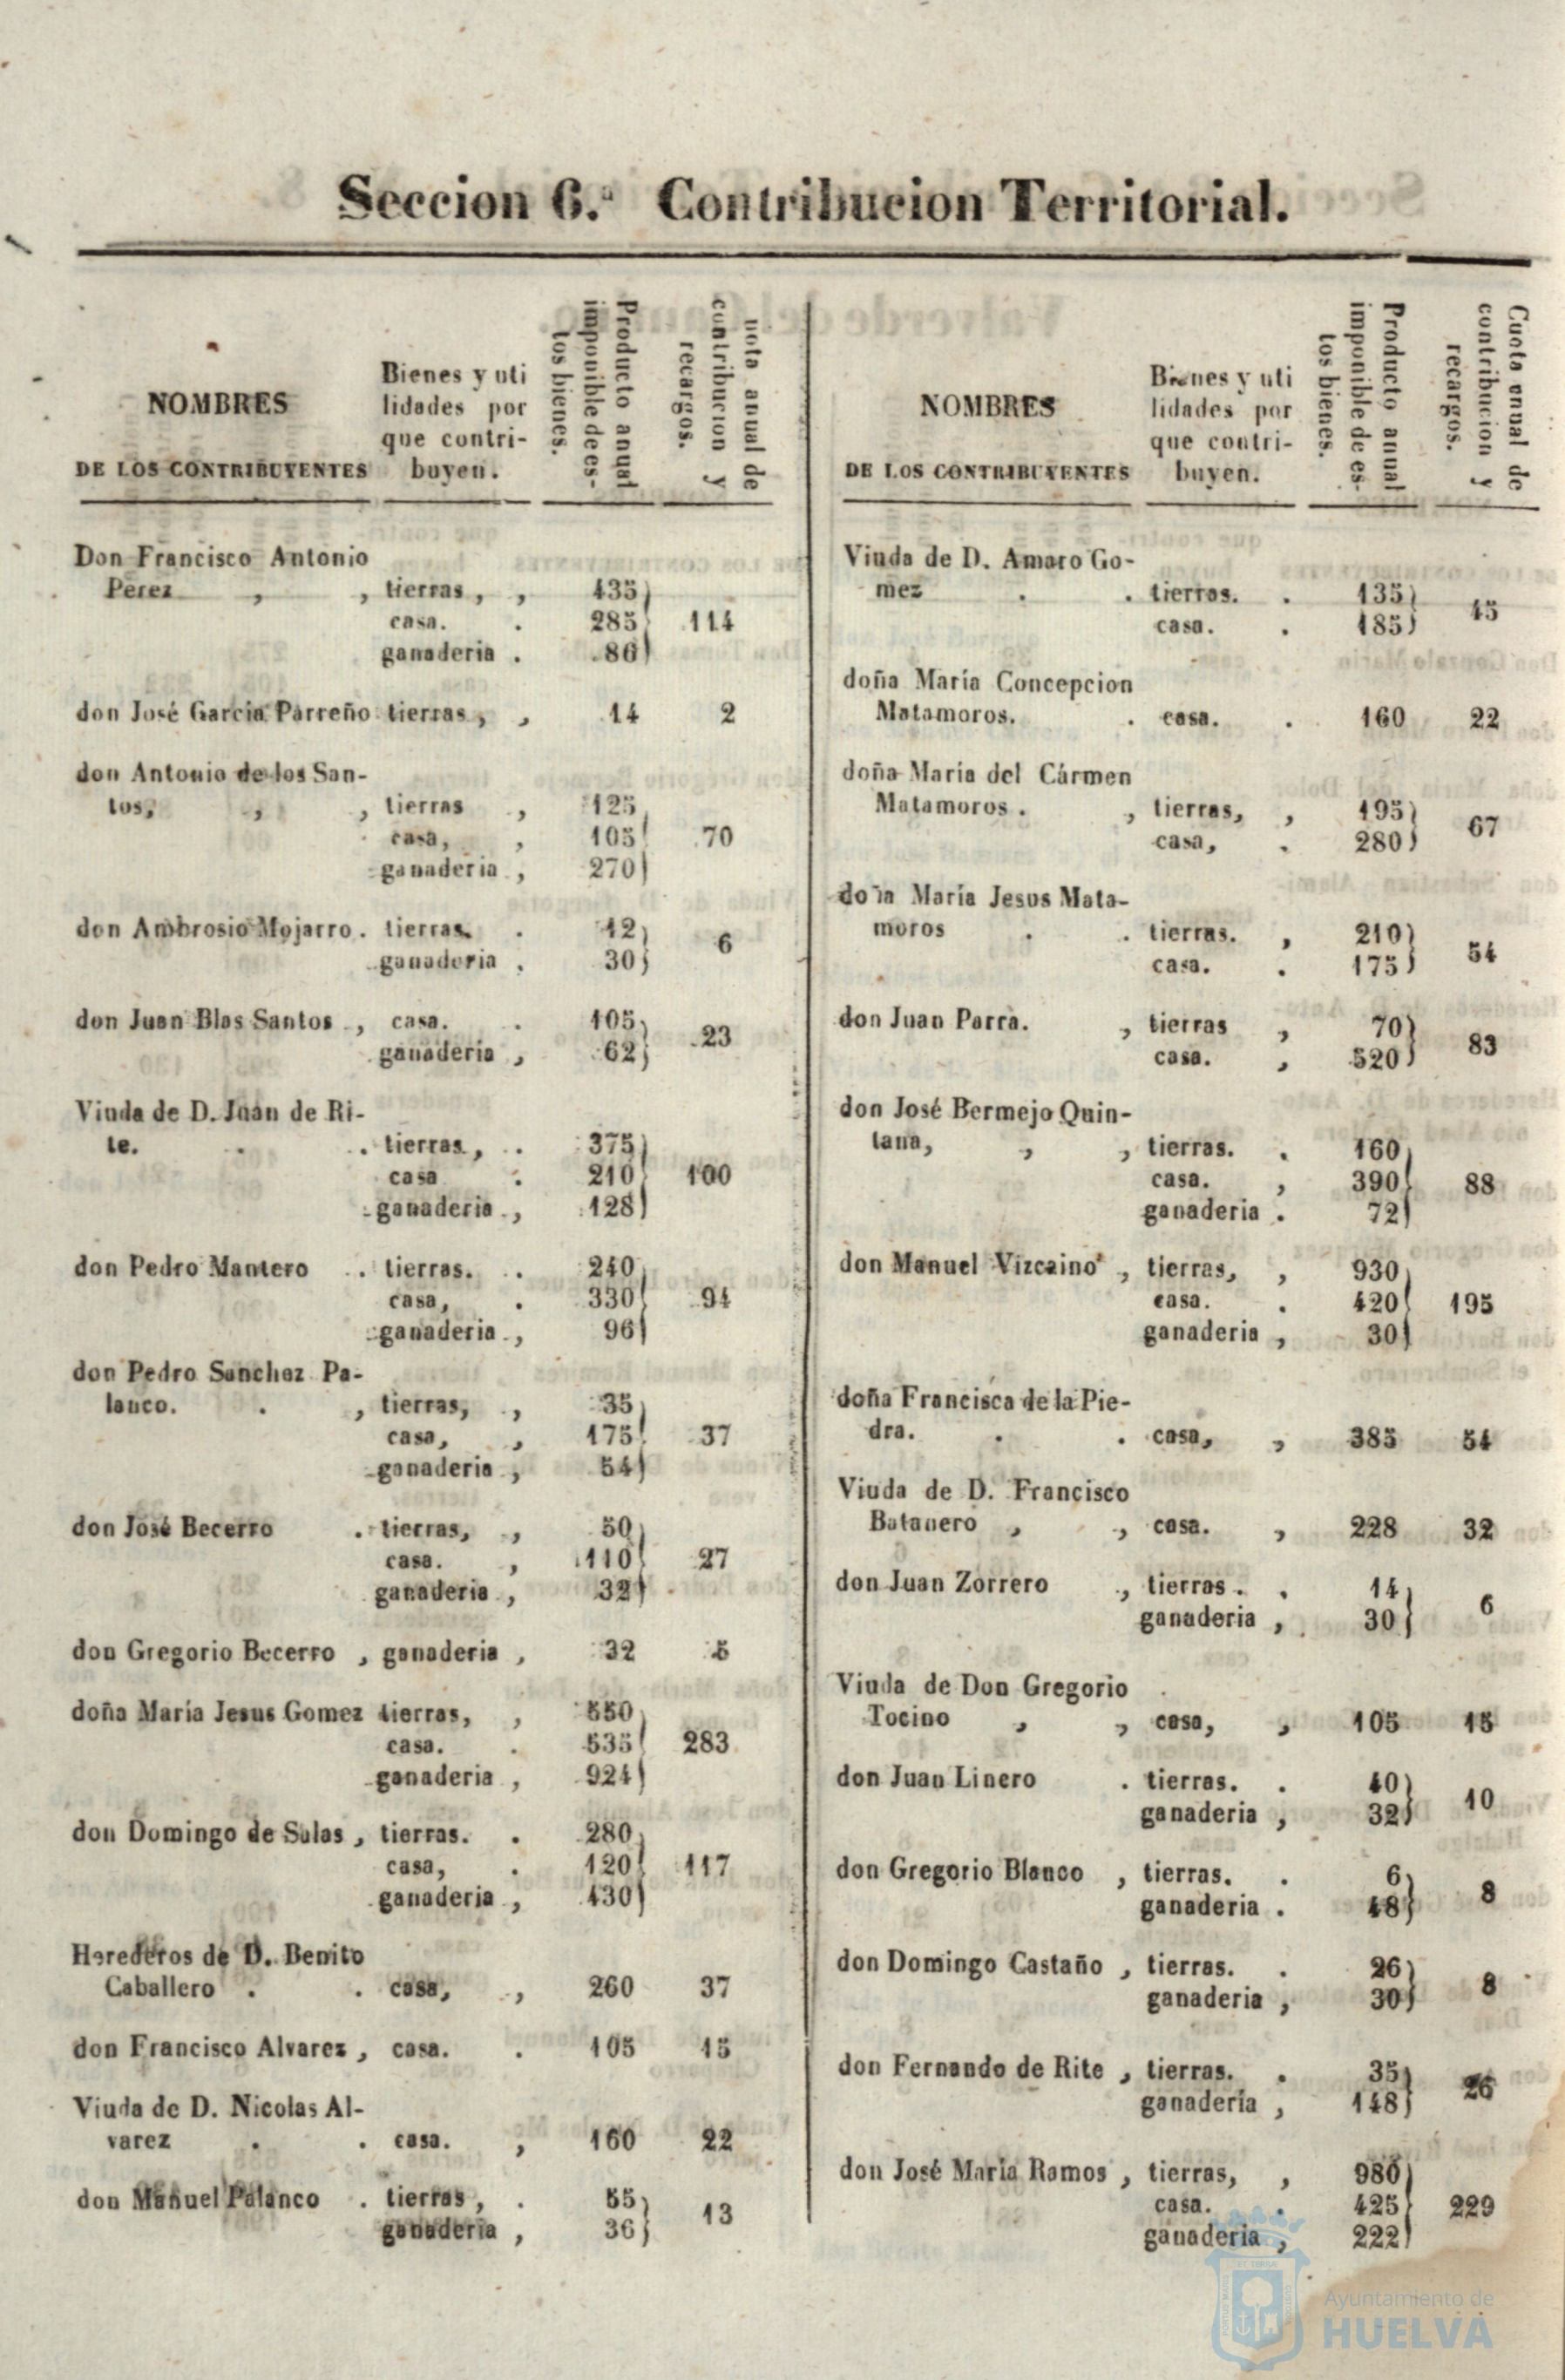 Seccion 6.ª Contribucion Territorial.
NOMBRES
DE LOS CONTRIBUYENTES
Bienes y uti
lidades por
que contri-
buyen.
Producto anual
imponible de es-
tos bienes.
uota anual de
contribucion y
recargos.
Don Francisco Antonio
Perez , , tierras , , 435
casa. . 285 114
ganaderia . 86
don José Garcia Parreño tierras , , 14 2
don Antonio de los San-
tos, , , tierras , 125
casa, , 105 70
ganaderia , 270
don Ambrosio Mojarro . tierras . 12
6
ganaderia . 30
don Juan Blas Santos , casa. . 105
23
ganaderia , 62
Viuda de D. Juan de Ri-
te. . . tierras , . 375
casa . 210 100
ganaderia , 128
don Pedro Mantero . tierras. . 240
casa, . 330 94
ganaderia , 96
don Pedro Sanchez Pa-
lanco. . , tierras, , 35
casa, , 175 37
ganaderia , 54
don José Becerro . tierras, , 50
casa. , 110 27
ganaderia , 32
don Gregorio Becerro , ganaderia , 32 5
doña Maria Jesus Gomez tierras, , 550
casa. . 535 283
ganaderia , 924
don Domingo de Salas , tierras. . 280
casa, . 120 117
ganaderia , 430
Herederos de D. Benito
Caballero . . casa, , 260 37
don Francisco Alvarez , casa. . 105 15
Viuda de D. Nicolas Al-
varez . . casa. , 160 22
don Manuel Palanco . tierras , . 55
13
ganaderia , 36
NOMBRES
DE LOS CONTRIBUYENTES
Bienes y uti
lidades por
que contri-
buyen.
Producto anual
imponible de es-
tos bienes.
Cuota anual de
contribucion y
recargos.
Viuda de D. Amaro Go-
mez . . tierras. . 135
45
casa. . 185
doña María Concepcion
Matamoros. . casa. . 160 22
doña Maria del Cármen
Matamoros . , tierras, , 195
67
casa, . 280
doña María Jesus Mata-
moros . . tierras. , 210
54
casa. . 175
don Juan Parra. , tierras , 70
83
casa. , 520
don José Bermejo Quin-
tana, , , tierras. . 160
casa. , 390 88
ganaderia . 72
don Manuel Vizcaino , tierras, , 930
casa. . 420 195
ganaderia , 30
doña Francisca de la Pie-
dra. . . casa, , 385 54
Viuda de D. Francisco
Batanero , , casa. , 228 32
don Juan Zorrero , tierras . . 14
6
ganaderia , 30
Viuda de Don Gregorio
Tocino , , casa, , 105 15
don Juan Linero . tierras. . 40
10
ganaderia , 32
don Gregorio Blanco , tierras. . 6
8
ganaderia . 48
don Domingo Castaño , tierras. . 26
8
ganaderia , 30
don Fernando de Rite , tierras. . 35
26
ganaderia , 148
don José Maria Ramos , tierras, , 986
casa. . 425 229
ganaderia , 222
Ayuntamiento de
HUELVA